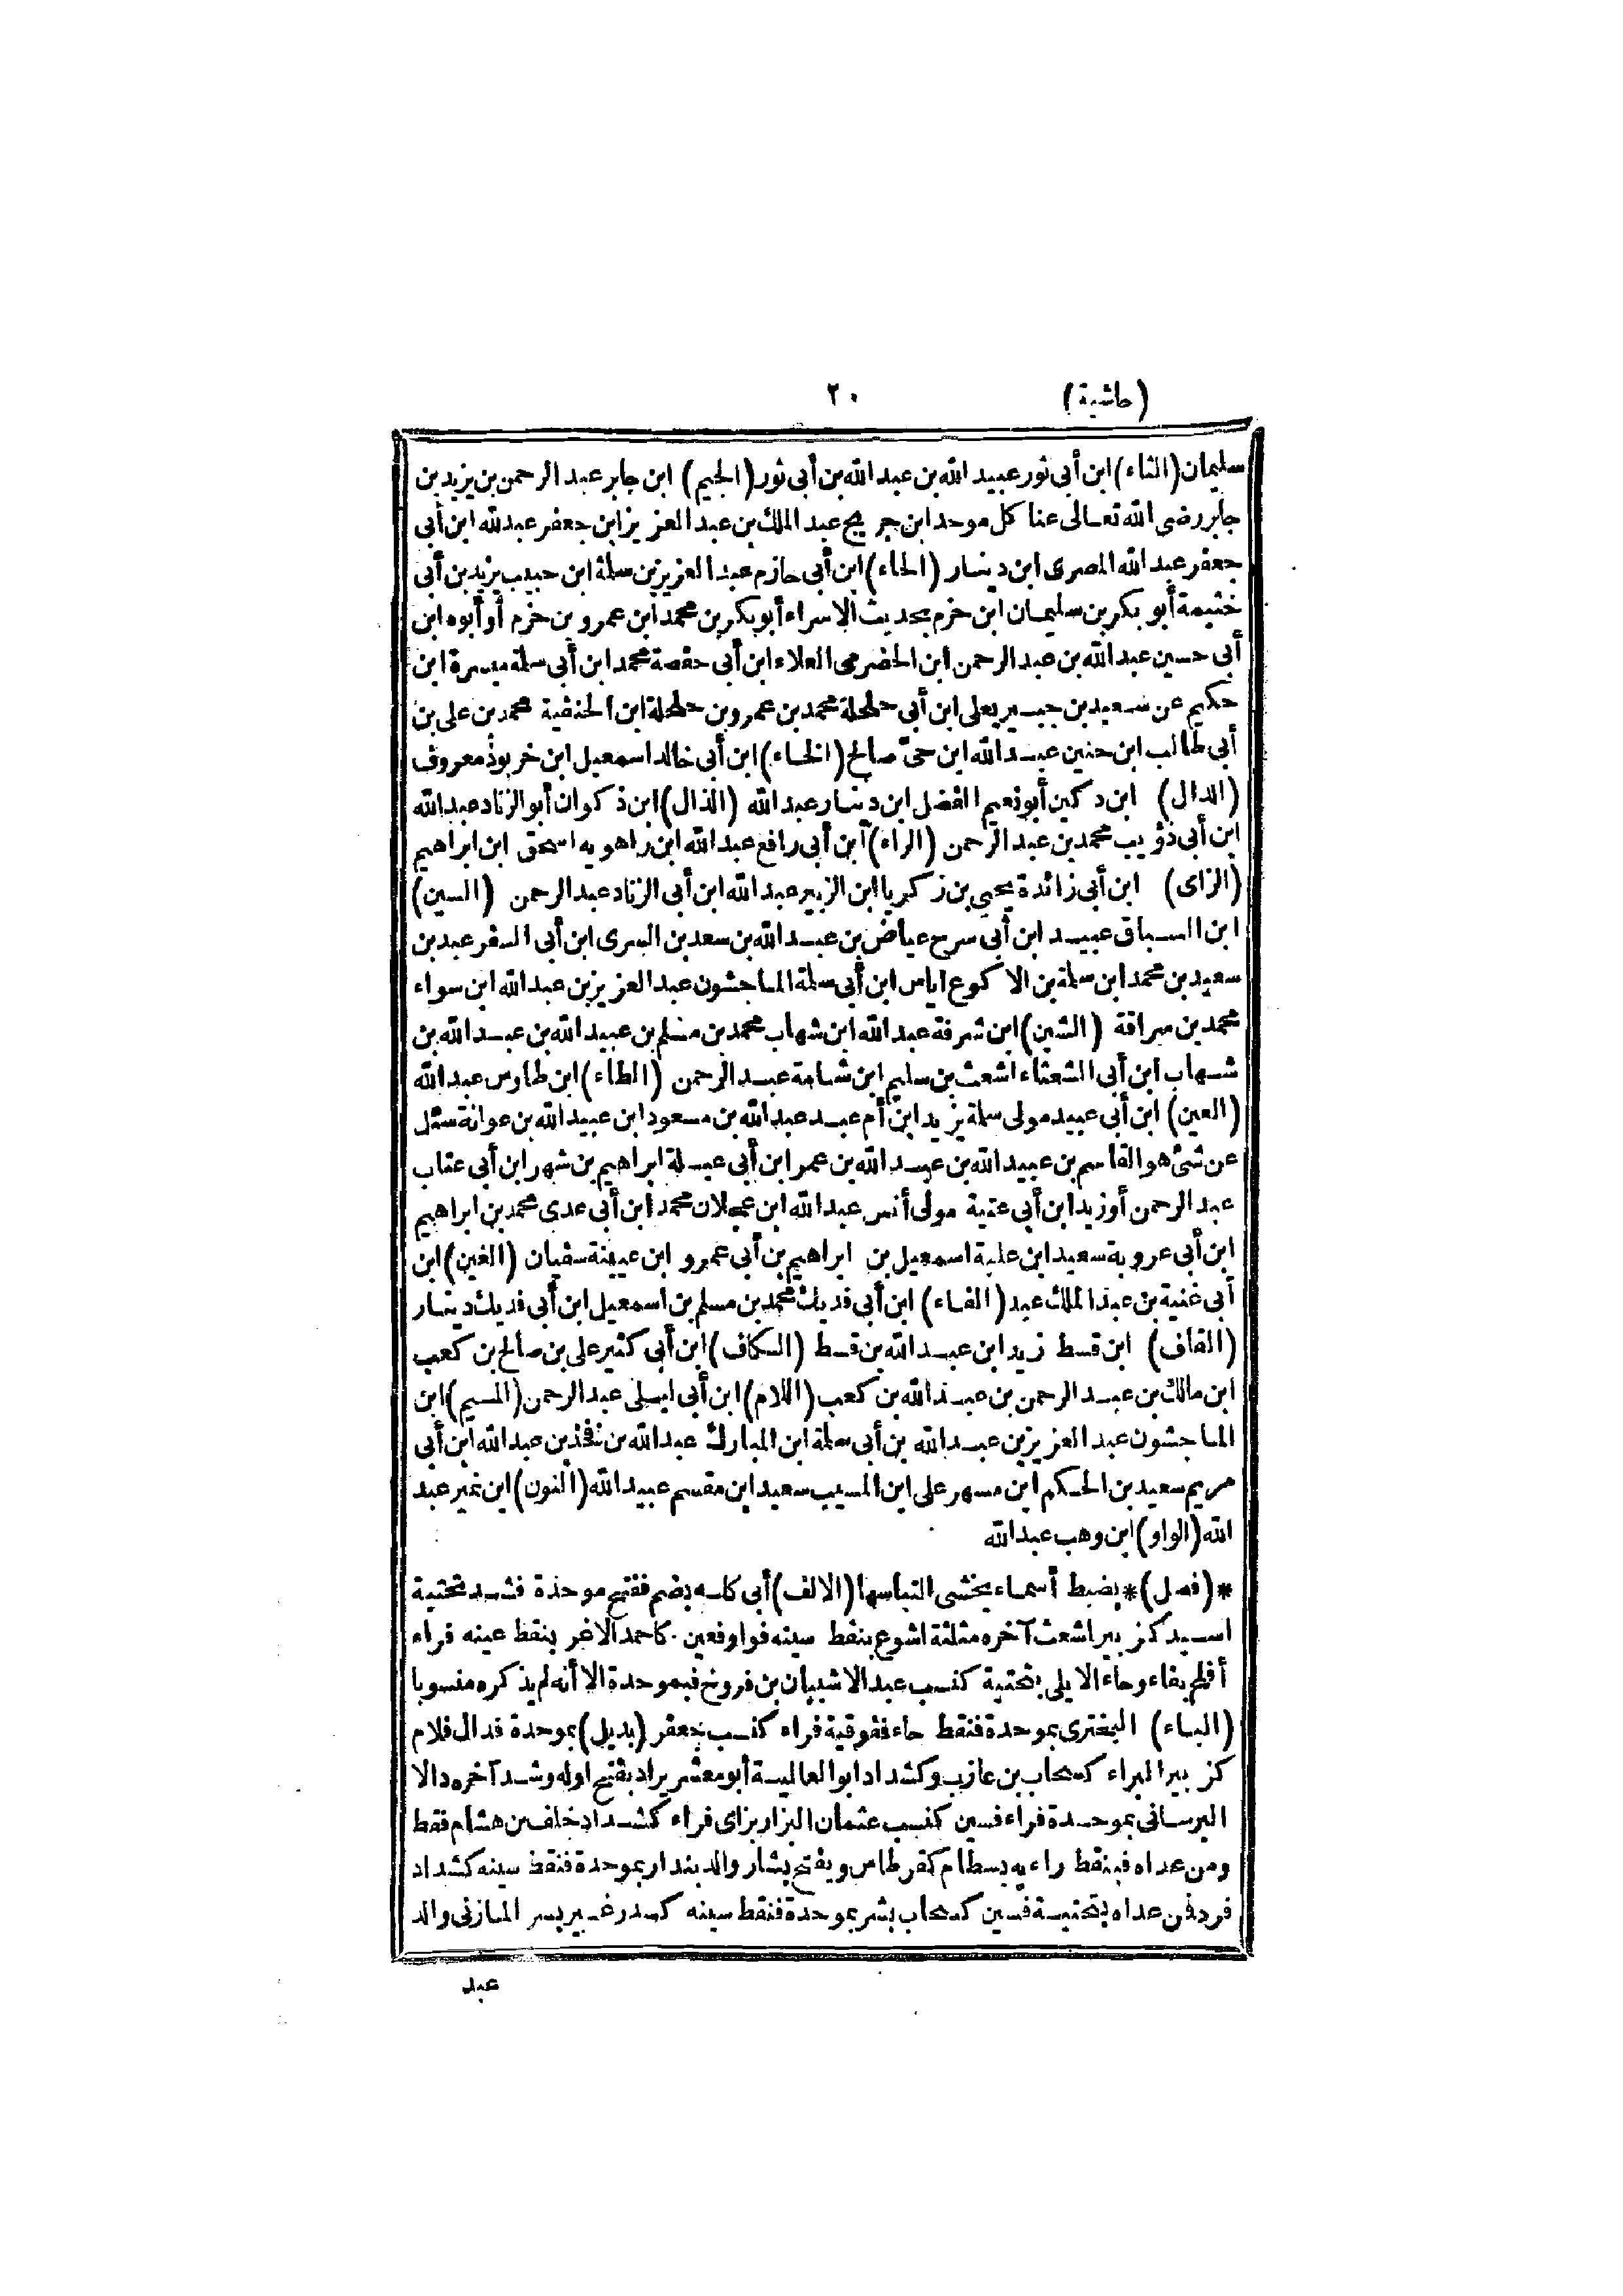 (حاشية)
٢٠
سليمان (الثاء) ابن أبى ثور عبيد الله بن عبد الله بن أبى ثور (الجيم) ابن جابر عبد الرحمن بن يزيد بن
جابر رضى الله تعالى عنا كل موحد ابن جريج عبد الملك بن عبد العزيز ابن جعفر عبد الله ابن أبى
جعفر عبد الله المصرى ابن دينار (الحاء) ابن أبى حازم عبد العزيز بن سلمة ابن حبيب يزيد بن أبى
خثيمة أبو بكر بن سليمان ابن حزم بحديث الإسراء أبو بكر بن محمد ابن عمرو بن حزم أو أبوه ابن
أبى حسين عبد الله بن عبد الرحمن ابن الحضرمى العلاء ابن أبى حفصة محمد ابن أبى سلمة ميسرة ابن
حكيم عن سعيد بن جبير يعلى ابن أبى حلحلة محمد بن عمرو بن حلحلة ابن الحنفية محمد بن على بن
أبى طالب ابن حنين عبد الله ابن حىّ صالح (الخاء) ابن أبى خالد اسمعيل ابن خربوذ معروف
(الدال) ابن دكين أبو نعيم الفضل ابن دينار عبد الله (الذال) ابن ذكوان أبو الزناد عبد الله
ابن أبى ذؤيب محمد بن عبد الرحمن (الراء) ابن أبى رافع عبد الله ابن راهويه اسحق ابن ابراهيم
(الزاى) ابن أبى زائدة يحيى بن زكريا ابن الزبير عبد الله ابن أبى الزناد عبد الرحمن (السين)
ابن السباق عبيد ابن أبى سرح عياض بن عبد الله بن سعد بن السرى ابن أبى السفر عبد بن
سعيد بن محمد ابن سلمة بن الاكوع اياس ابن أبى سلمة الماجشون عبد العزيز بن عبد الله ابن سواء
محمد بن سراقة (الشين) ابن شرفة عبد الله ابن شهاب محمد بن مسلم بن عبيد الله بن عبد الله بن
شهاب ابن أبى الشعثاء اشعث بن سليم ابن شمامة عبد الرحمن (الطاء) ابن طاوس عبد الله
(العين) ابن أبى عبيد مولى سلمة يزيد ابن أم عبد عبد الله بن مسعود ابن عبيد الله بن عوانة سئل
عن شئ هو القاسم بن عبيد الله بن عبد الله بن عمر ابن أبى عبلة ابراهيم بن شهر ابن أبى عتاب
عبد الرحمن أو زيد ابن أبى عتبة مولى أنس عبد الله ابن عجلان محمد ابن أبى عدى محمد بن ابراهيم
ابن أبى عروبة سعيد ابن علية اسمعيل بن ابراهيم بن أبى عمرو ابن عيينة سفيان (الغين) ابن
أبى غنية بن عبد الملك عبد (الفاء) ابن أبى فديك محمد بن مسلم بن اسمعيل ابن أبى فديك دينار
(القاف) ابن قسط زيد ابن عبد الله بن قسط (الكاف) ابن أبى كثير على بن صالح بن كعب
ابن مالك بن عبد الرحمن بن عبد الله بن كعب (اللام) ابن أبى ليلى عبد الرحمن (الميم) ابن
الماجشون عبد العزيز بن عبد الله بن أبى سلمة ابن المبارك عبد الله بن عبد الله ابن أبى
مريم سعيد بن الحكم ابن مسهر على ابن المسيب سعيد ابن مقسم عبيد الله (النون) ابن نمير عبد
الله (الواو) ابن وهب عبد الله
*(فصل)* بضبط أسماء يخشى التباسها (الالف) أبى كله بضم ففتح موحدة فشد تحتية
اسيد كزبير اشعث آخره مثلثة اشوع بنقط سينه فواو فعين كاحمد الاغر بنقط عينه فراء
أفلح بفاء وحاء الايلى بتحتية كنسب عبد الا شيبان بن فروخ فبموحدة الا أنه لم يذكره منسوبا
(الباء) البخترى بموحدة فنقط حاء ففوقية فراء كنسب جعفر (بديل) بموحدة فدال فلام
كزبير البراء كسحاب بن عازب وكشداد ابو العالية أبو معشر براد بفتح اوله وشد آخره دالا
البرسانى بموحدة فراء فسين كنسب عثمان البزار بزاى فراء كشداد خلف بن هشام فقط
ومن عداه فبنقط راءيه بسطام كقرطاس ويفتح بشار والد بندار بموحدة فنقط سينه كشداد
فرد فن عداه بتحتية فسين كسحاب بشر بموحدة فنقط سينه كسدر غير بسر المازنى والد
عبد